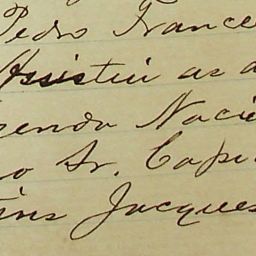 Pedro France
Assistiu as a
zenda Nacio
ao Sr. Capi
tins Jacques